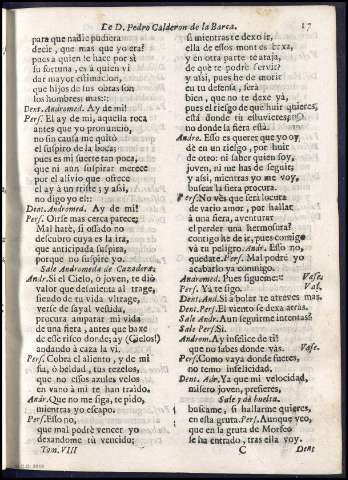 De D. Pedro Calderon de la Barca.
17
para que nadie pudiera
decir, que mas que yo era?
pues a quien le hace por sì
su fortuna, es à quien vi
dar mayor estimacion,
que hijos de sus obras son
los hombres: mas::
Dent. Andromed. Ay de mi!
Pers. El ay de mi, aquella roca
antes que yo pronunciò,
no sin causa me quitò
el suspiro de la boca:
pues es mi suerte tan poca,
que ni aun suspirar merece
por el alivio que ofrece
el ay à un triste; y assi,
no digo yo el::
Dent. Andromed. Ay de mi!
Pers. Oirse mas cerca parece;
Mal hatè, si ossado no
descubro cuya es la ira,
que anticipada suspira,
porque no suspire yo.
Sale Andromeda de Cazadora.
Andr. Si el Cielo, ò joven, te diò
valor que desmiente al trage,
siendo de tu vida ultrage,
verse de sayal vestida,
procura amparar mi vida
de una fiera, antes que baxe
de esse risco donde; ay (Cielos!)
andando à caza la vi.
Pers. Cobra el aliento, y de mi
fia, ò beldad, tus rezelos,
que no essos azules velos
en vano à mi te han traido.
Andr. Que no me siga, te pido,
mientras yo escapo.
Pers. Esso no,
que mal podrè vencer yo
dexandome tù vencido;
Tom. VIII
si mientras te dexo ir,
ella de essos montes baxa,
y en otra parte te ataja,
de què te podrè servir?
y assi, pues he de morir
en tu defensa, serà
bien, que no te dexe yà,
pues el riesgo de que huir quieres,
està donde tù estuvieres,
no donde la fiera està.
Andr. Esso es querer que yo oy,
dè en un riesgo, por huir
de otro: ni saber quien soy,
joven, ni me has de seguir;
y assi, mientras yo me voy,
buscar la fiera procura.
Pers. No vès que serà locura
de vario amor, por hallar
à una fiera, aventurar
el perder una hermosura?
contigo he de ir, pues conmigo
và tu peligro. Andr. Esso no,
quedate. Pers. Mal podrè yo
acabarlo yà conmigo.
Andromed. Pues sigueme:: Vase.
Pers. Yà te sigo. Vas.
Dent. And. Si à bolar te atreves mas.
Dent. Pers. El viento se dexa atràs.
Sale Andr. Aun seguirme intentas?
Sale Pers. Si.
Androm. Ay infelice de ti!
que no sabes donde vàs. Vase.
Pers. Como vaya donde fueres,
no temo infelicidad.
Dent. Adr. Ya que mi velocidad,
misero joven, prefieres,
Sale yà de buelta.
buscame, si hallarme quieres,
en esta gruta. Pers. Aunque veo,
que en la gruta de Morfeo
le ha entrado, tras ella voy.
C
Dent